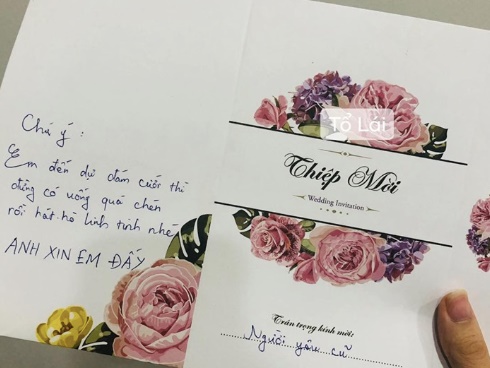 Chú ý :
Em đến dự đám cưới thì
đừng có uống quá chén
rồi hát hò linh tinh nhé
ANH XIN EM ĐẤY
Tổ Lái
Thiệp Mời
Wedding Invitation
Trân trọng kính mời:
Người yêu cũ